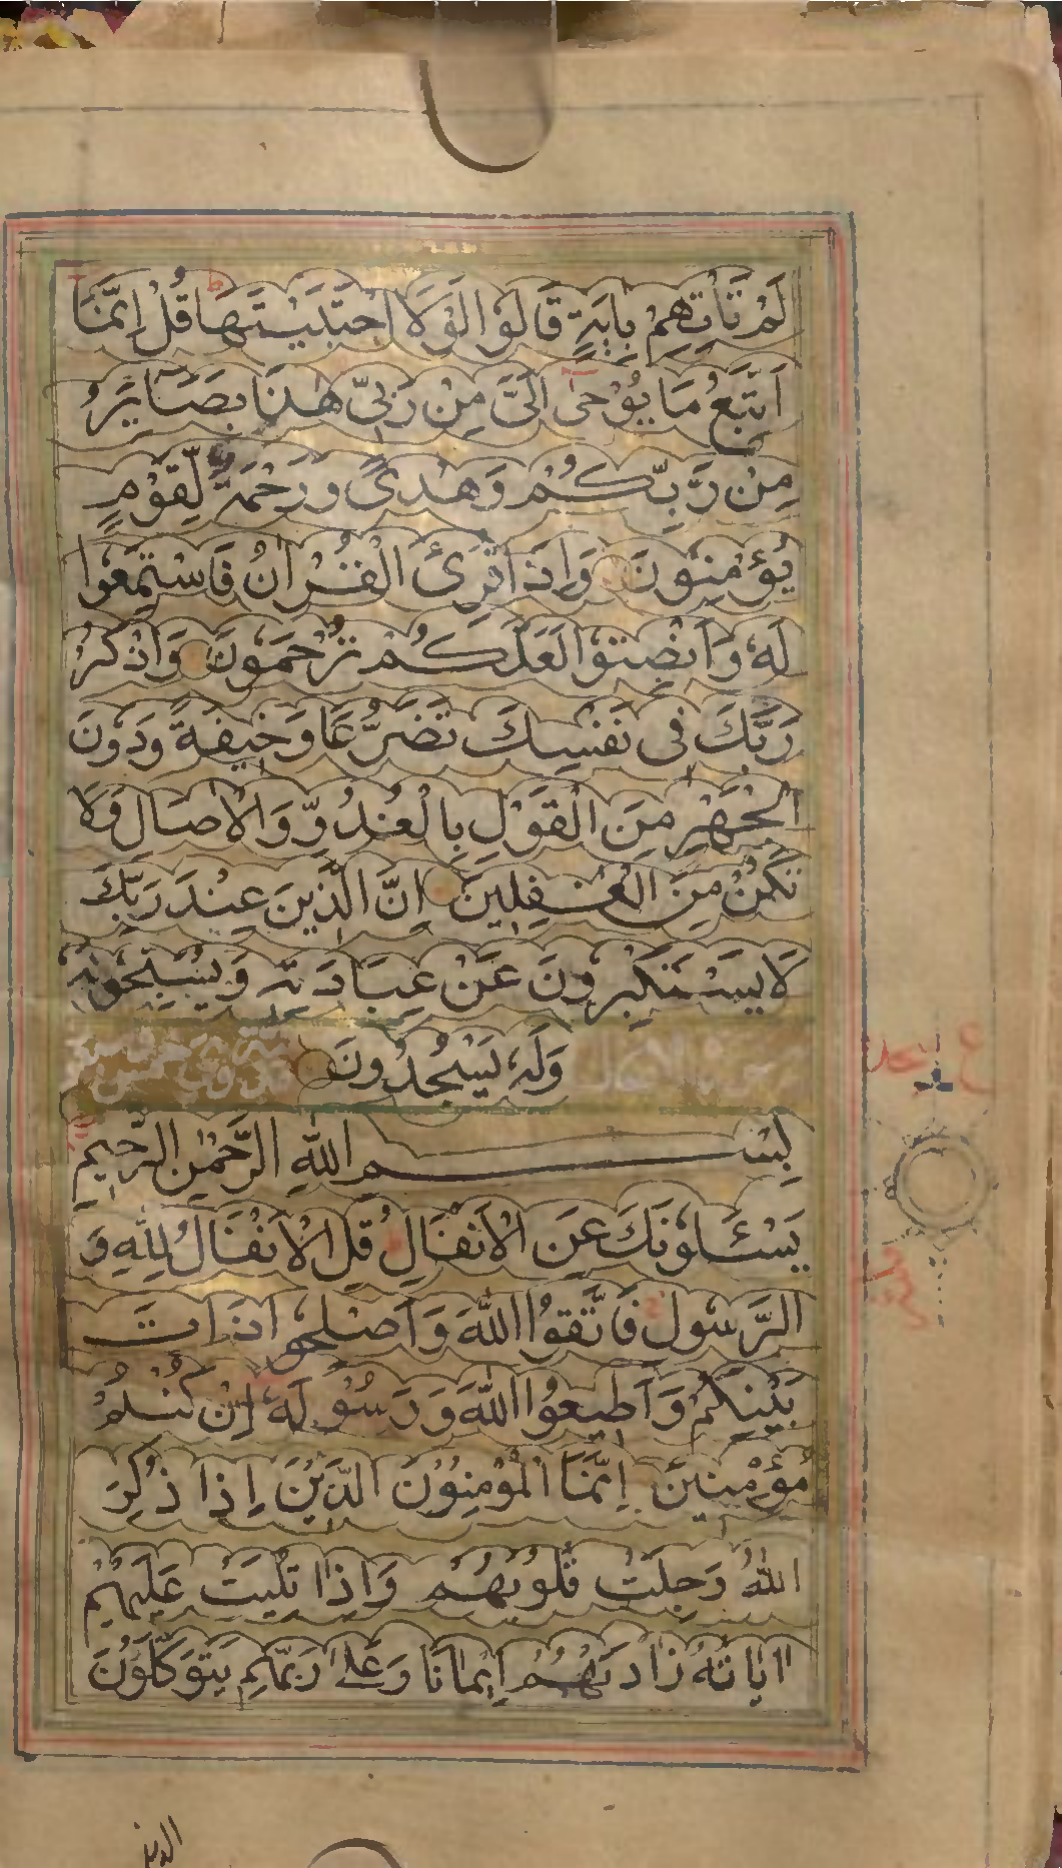 لَمْ تَأْتِهِمْ بِاٰيَةٍ قَالُوْا لَوْلَا اجْتَبَيْتَهَا قُلْ اِنَّمَا
اَتَّبِعُ مَا يُوْحٰى اِلَىَّ مِنْ رَبِّىْ هٰذَا بَصَايِرُ
مِنْ رَّبِّكُمْ وَهُدًى وَرَحْمَةٌ لِّقَوْمٍ
يُؤْمِنُونَ وَاِذَا قُرِئَ الْقُرْاٰنُ فَاسْتَمِعُوا
لَهٗ وَاَنْصِتُوْا لَعَلَّكُمْ تُرْحَمُونَ وَاذْكُرْ
رَبَّكَ فِى نَفْسِكَ تَضَرُّعًا وَخِيفَةً وَدُونَ
الْجَهْرِ مِنَ الْقَوْلِ بِالْغُدُوِّ وَالْاٰصَالِ وَلَا
تَكُنْ مِنَ الْغٰفِلِينَ اِنَّ الَّذِينَ عِنْدَ رَبِّكَ
لَا يَسْتَكْبِرُونَ عَنْ عِبَادَتِهٖ وَيُسَبِّحُونَهٗ
وَلَهٗ يَسْجُدُونَ
بِسْمِ اللّٰهِ الرَّحْمٰنِ الرَّحِيمِ
يَسْـَٔلُونَكَ عَنِ الْاَنْفَالِ قُلِ الْاَنْفَالُ لِلّٰهِ وَ
الرَّسُولِ فَاتَّقُوا اللّٰهَ وَاَصْلِحُوا ذَاتَ
بَيْنِكُمْ وَاَطِيعُوا اللّٰهَ وَرَسُوْلَهٗ اِنْ كُنْتُمْ
مُؤْمِنِينَ اِنَّمَا الْمُؤْمِنُوْنَ الَّذِيْنَ اِذَا ذُكِرَ
اللّٰهُ وَجِلَتْ قُلُوبُهُمْ وَاِذَا تُلِيَتْ عَلَيْهِمْ
اٰيَاتُهُ زَادَتْهُمْ اِيْمَانًا وَعَلٰى رَبِّهِمْ يَتَوَكَّلُوْنَ
الذين